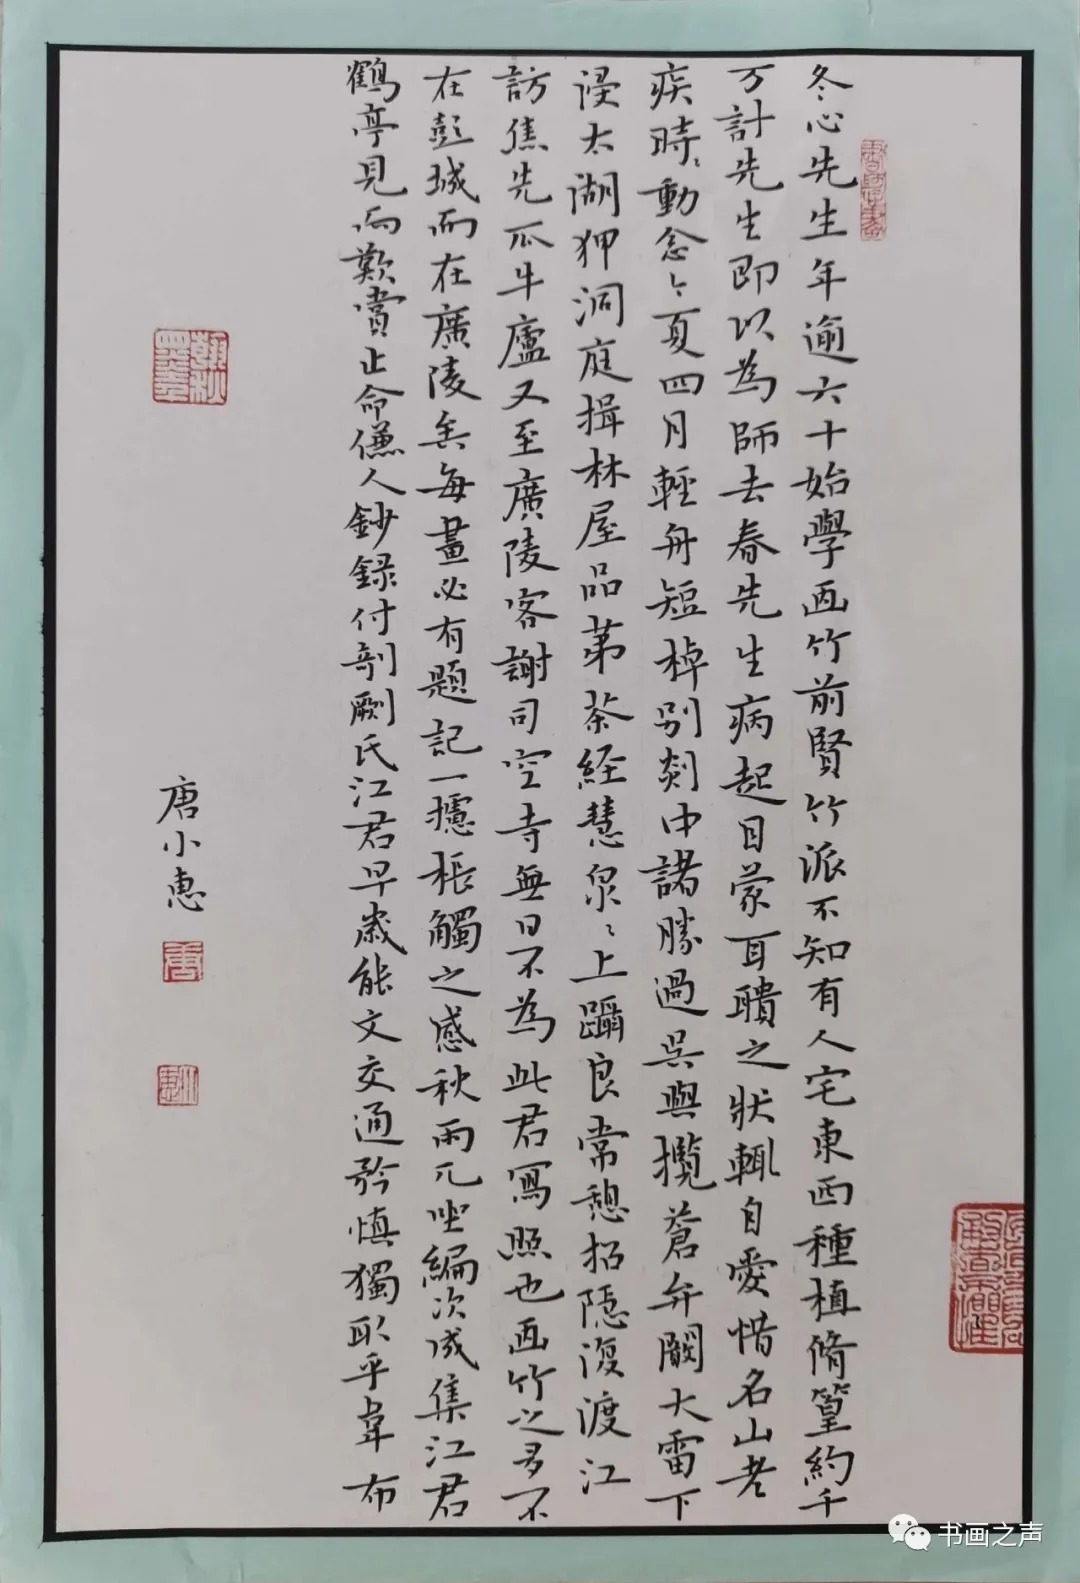 冬心先生年逾六十始學画竹前賢竹派不知有人宅東西種植脩篁約千
万計先生即以為師去春先生病起目蒙耳聵之狀輒自愛惜名山老
疾時〻動念〻夏四月輕舟短棹別剡中諸勝過吳興攬蒼弁闞大雷下
浸太湖狎洞庭揖林屋品第茶経慧泉〻上躡良常憩招隱復渡江
訪焦先瓜牛廬又至廣陵客謝司空寺無日不為此君寫照也画竹之多不
在彭城而在廣陵矣每畫必有題記一攄棖觸之感秋雨兀坐編次成集江君
鶴亭見而歎賞止命傔人鈔録付剞劂氏江君早歲能文交通矜慎獨取乎韋布
唐小惠
书画之声